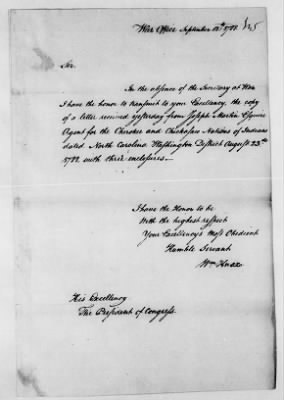 War Office September 12th 1788.
Sir
In the absence of the Secretary at War
I have the honor to transmit to your Excellency, the copy
of a letter received yesterday from Joseph Martin Esquire
Agent for the Cherokee and Chickasaw Nations of Indians
dated North Carolina Washington District August 23rd
1788 with three enclosures.—
I have the Honor to be
With the highest respect
Your Excellency's Most Obedient
Humble Servant
Wm Knox
His Excellency
The President of Congress.